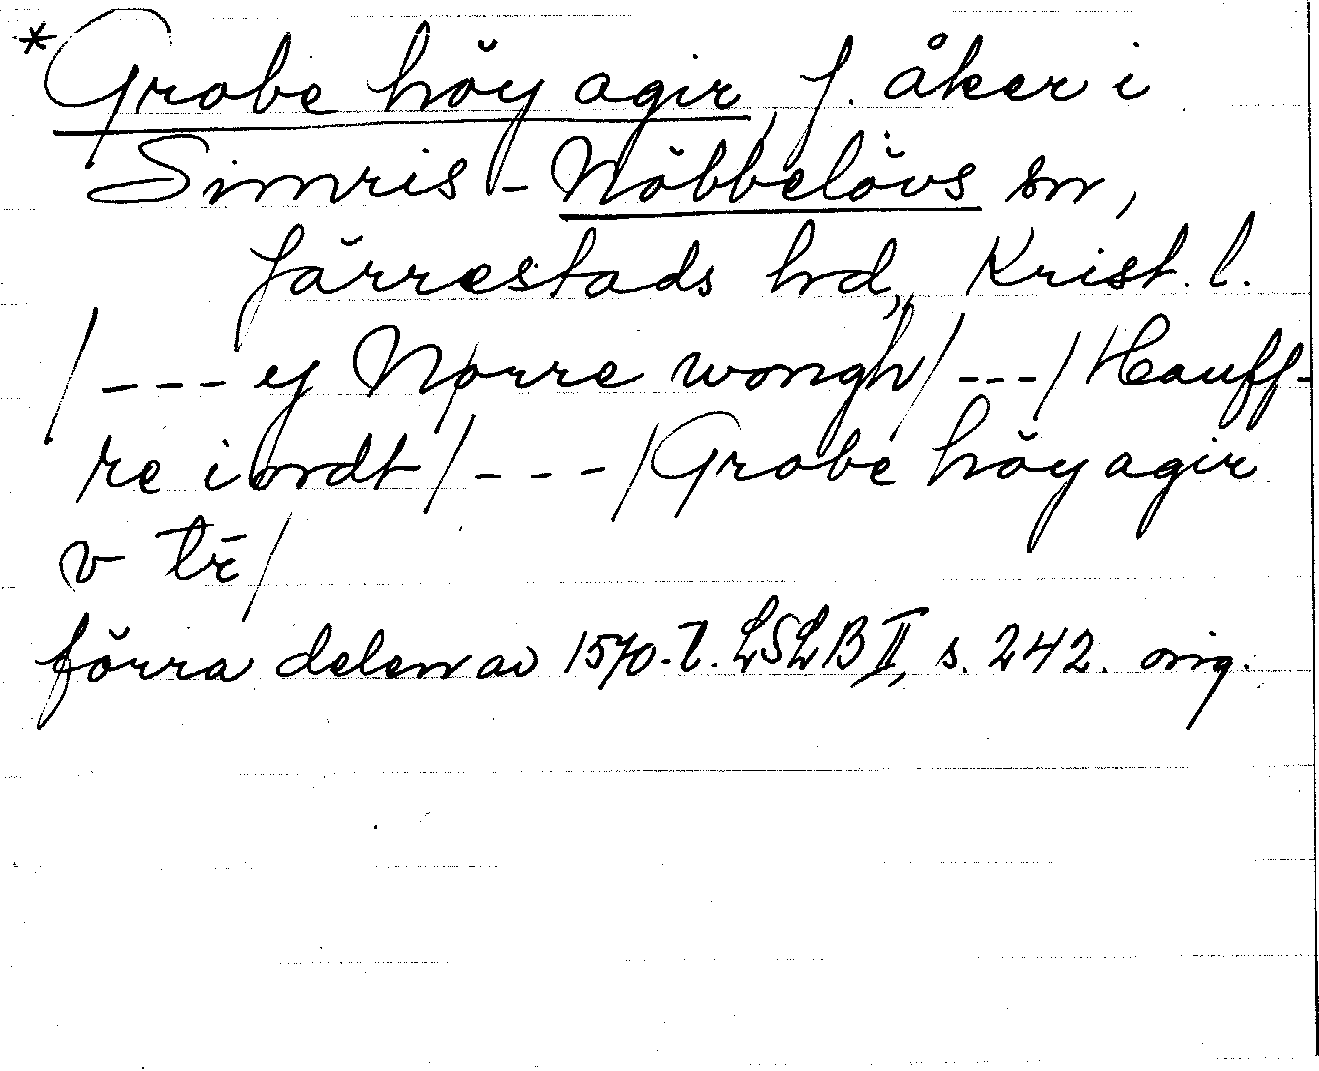 *Grobe höy agir, f. åker i
Simris-Nöbbelövs sn,
Järrestads hd, Krist. l.
/---ej Nørre wongh/---/Hauff-
re indt/---/Grobe höy agir
v tr̄/
förra delen av 1570-t. LSLB II, s. 242. orig.